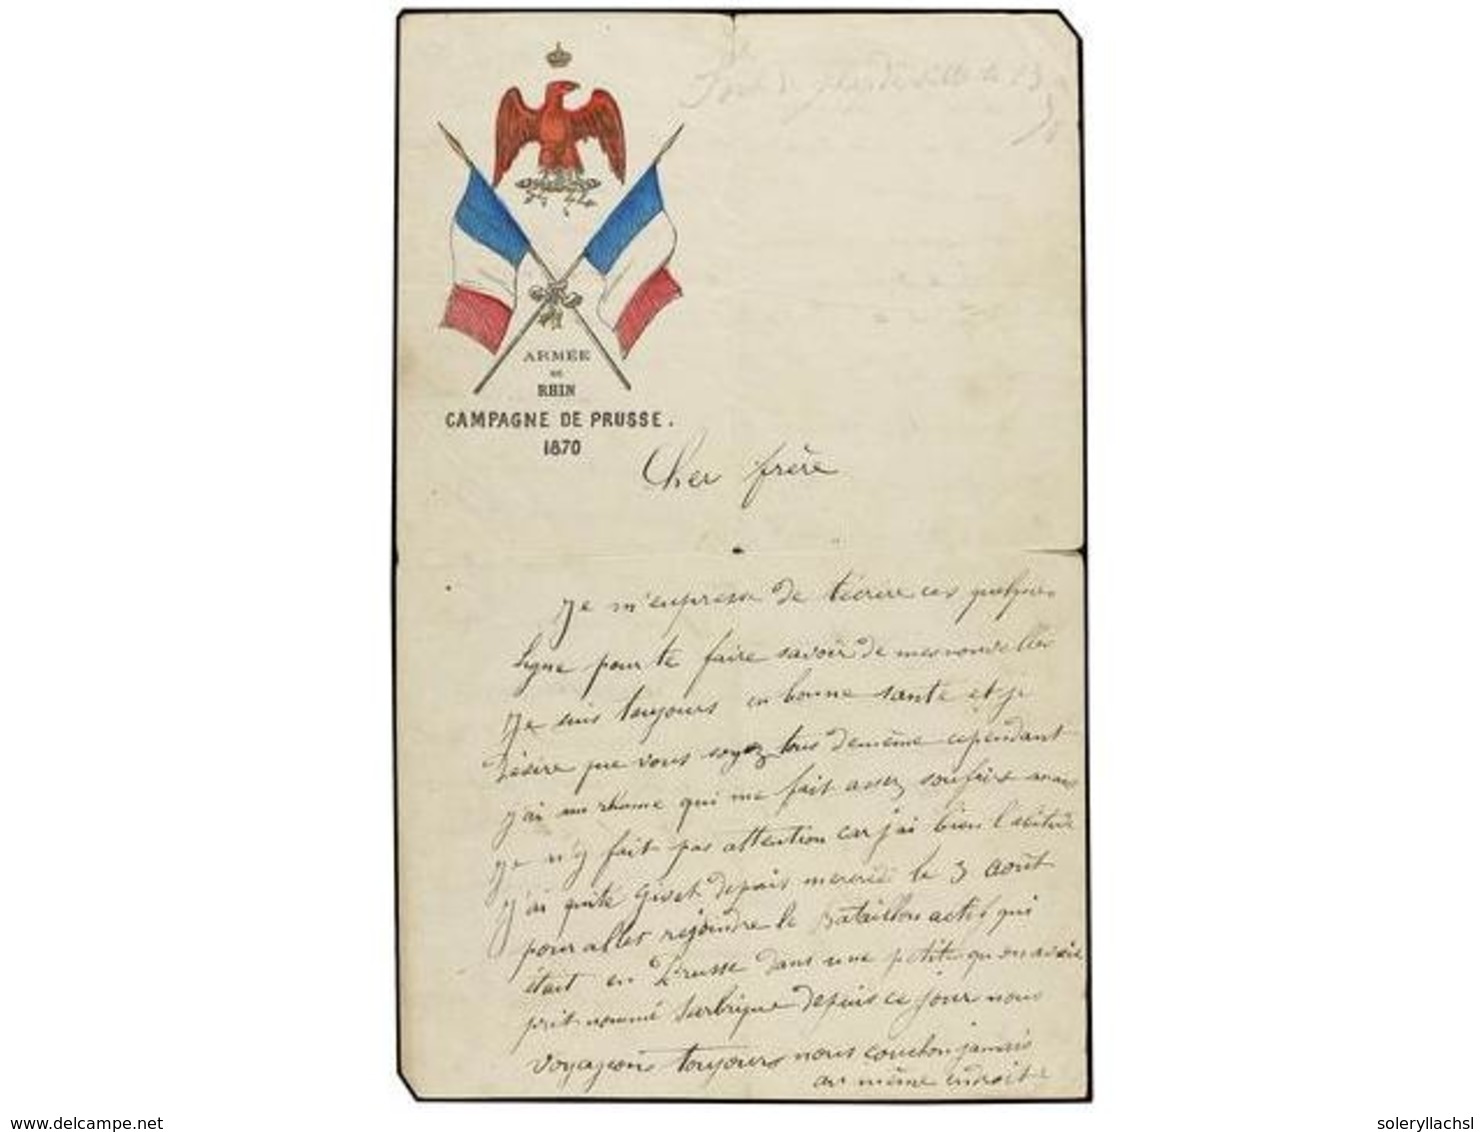 ARMÉE
DU
RHIN
CAMPAGNE DE PRUSSE.
1870
Cher frère
Je m'empresse de técrire ces quelques
ligne pour te faire savoir de mes nouvelles
Je suis toujours en bonne santé et je
désire que vous soyez tous de même cependant
j'ai un rhume qui me fait assez soufrire mais
je n'y fait pas attention car j'ai bien l'abitude
J'ai quité Givet depuis mercredi le 3 août
pour aller rejoindre le Bataillon actif qui
était en Prusse dans une petite qu'on avait
prit nommé Sarbrique depuis ce jour nous
voyageons toujours nous couchon jamais
au même endroit
www.delcampe.net
soleryllachsl